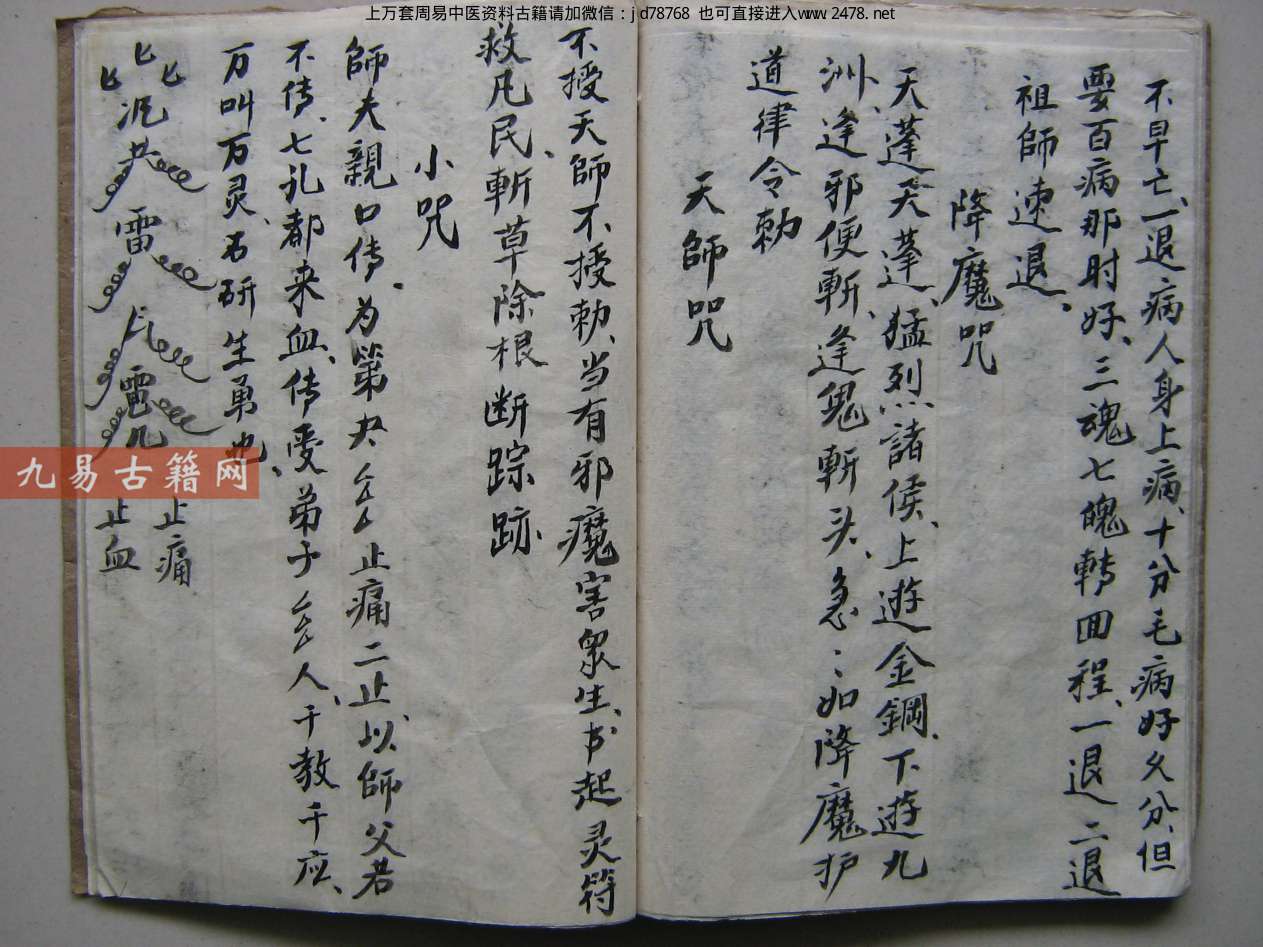 上万套周易中医资料古籍请加微信：jd78768 也可直接进入www.2478.net
不早亡、一退病人身上病、十分毛病好久分、但
要百病那时好、三魂七魄转回程、一退二退
祖師速退、
降魔咒
天蓬天蓬、猛烈諸侯、上遊金鋼、下遊九
洲、逢邪便斬、逢鬼斬头、急：如降魔护
道律令勅
天師咒
不授天師不授勅、当有邪魔害眾生、书起灵符
救凡民、斬草除根断踪跡、
小咒
師夫親口传、为第 止痛二止、以師父若
不传、七孔都来血、传受弟子 人、千教千应、
万叫万灵、石研生勇也、
雷
電
止痛
止血
九易古籍网